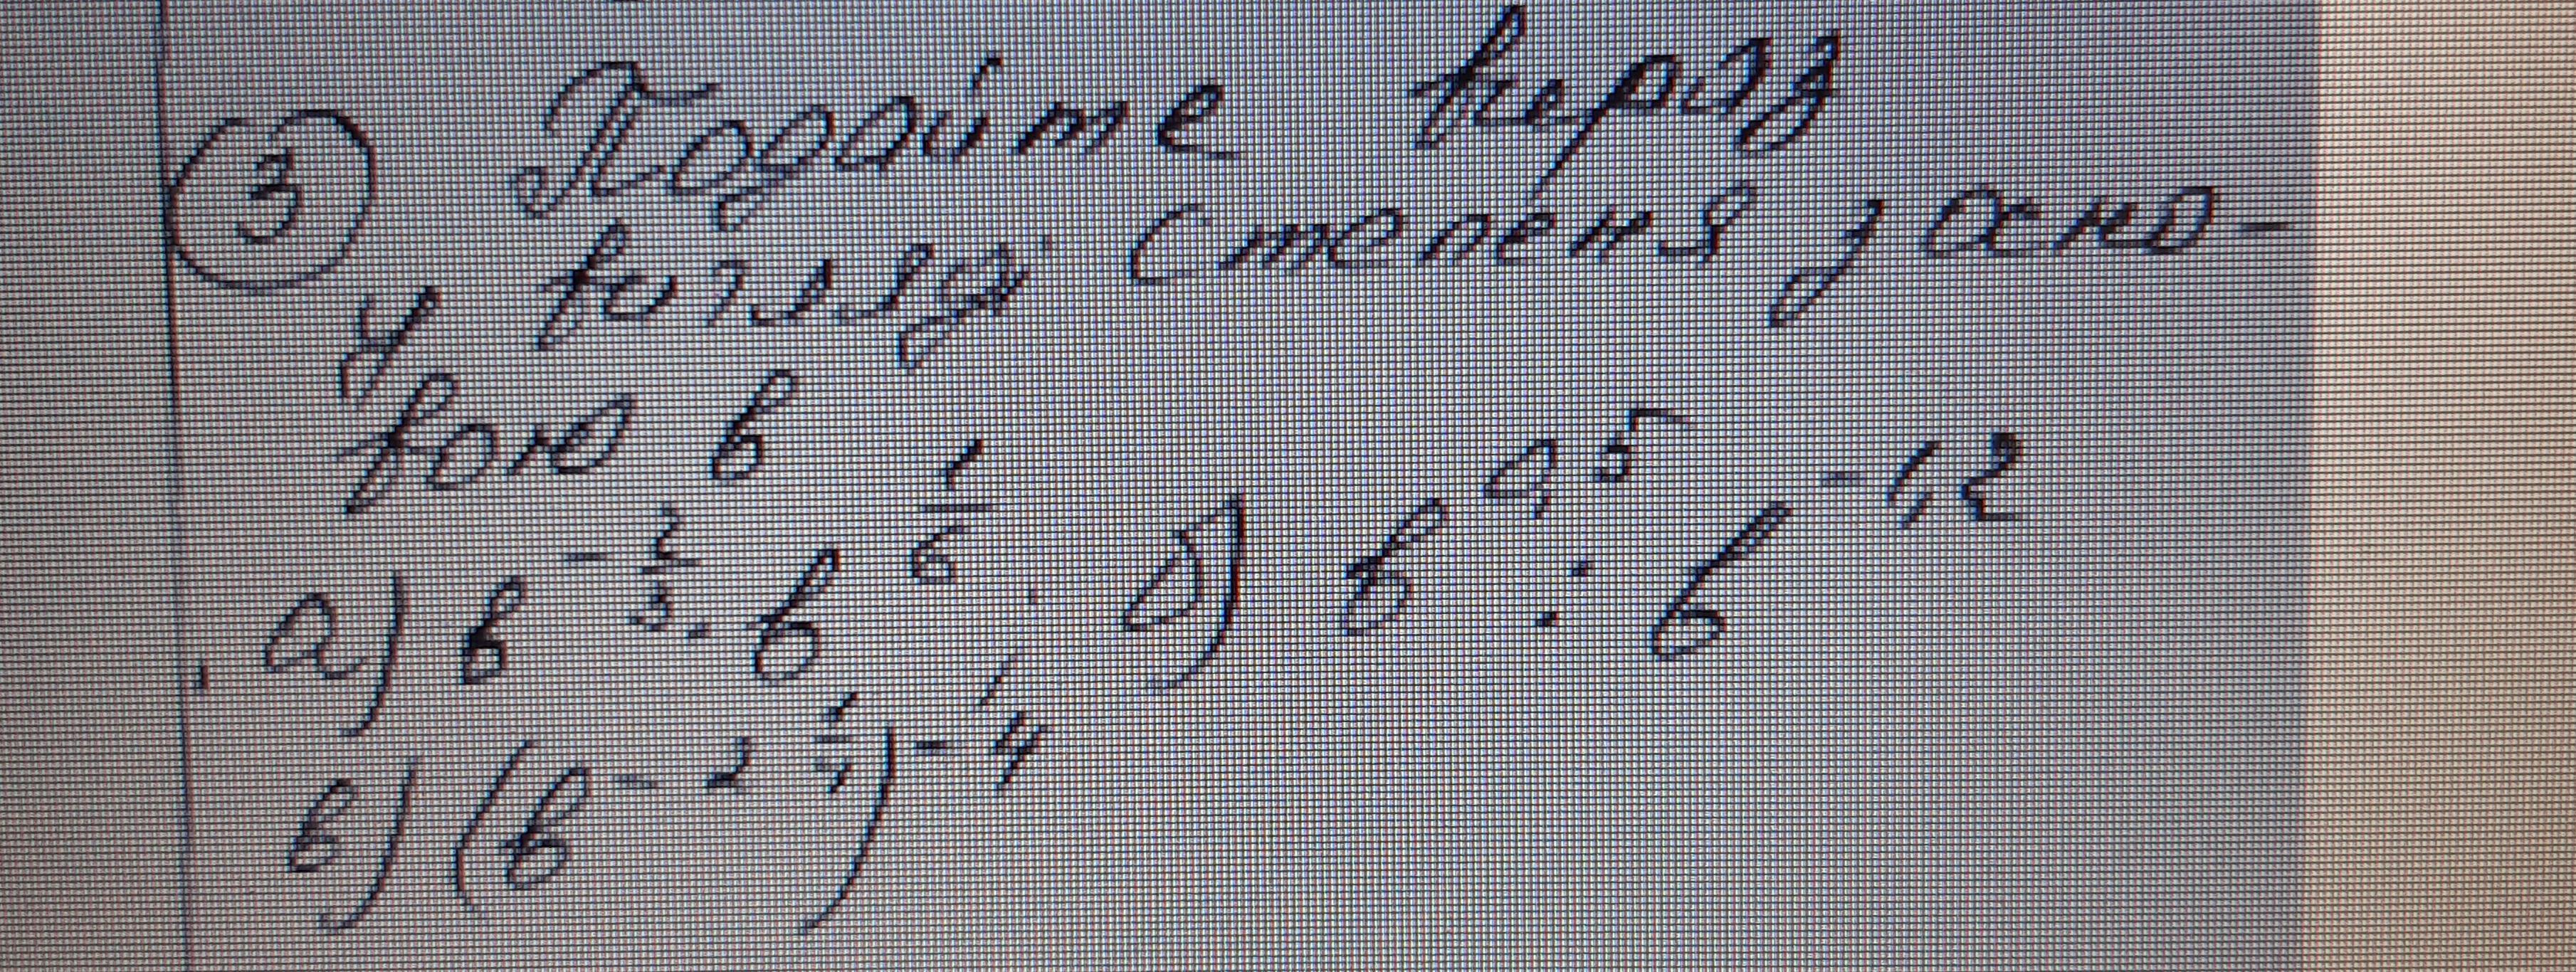 ③ Подайте вираз
у вигляді степеня з осно-
вою в
а) в^(-2/3) · в^(1/6); б) в^(0,5) : в^(-1,2)
в) (в^(-2 1/4))^(-4)